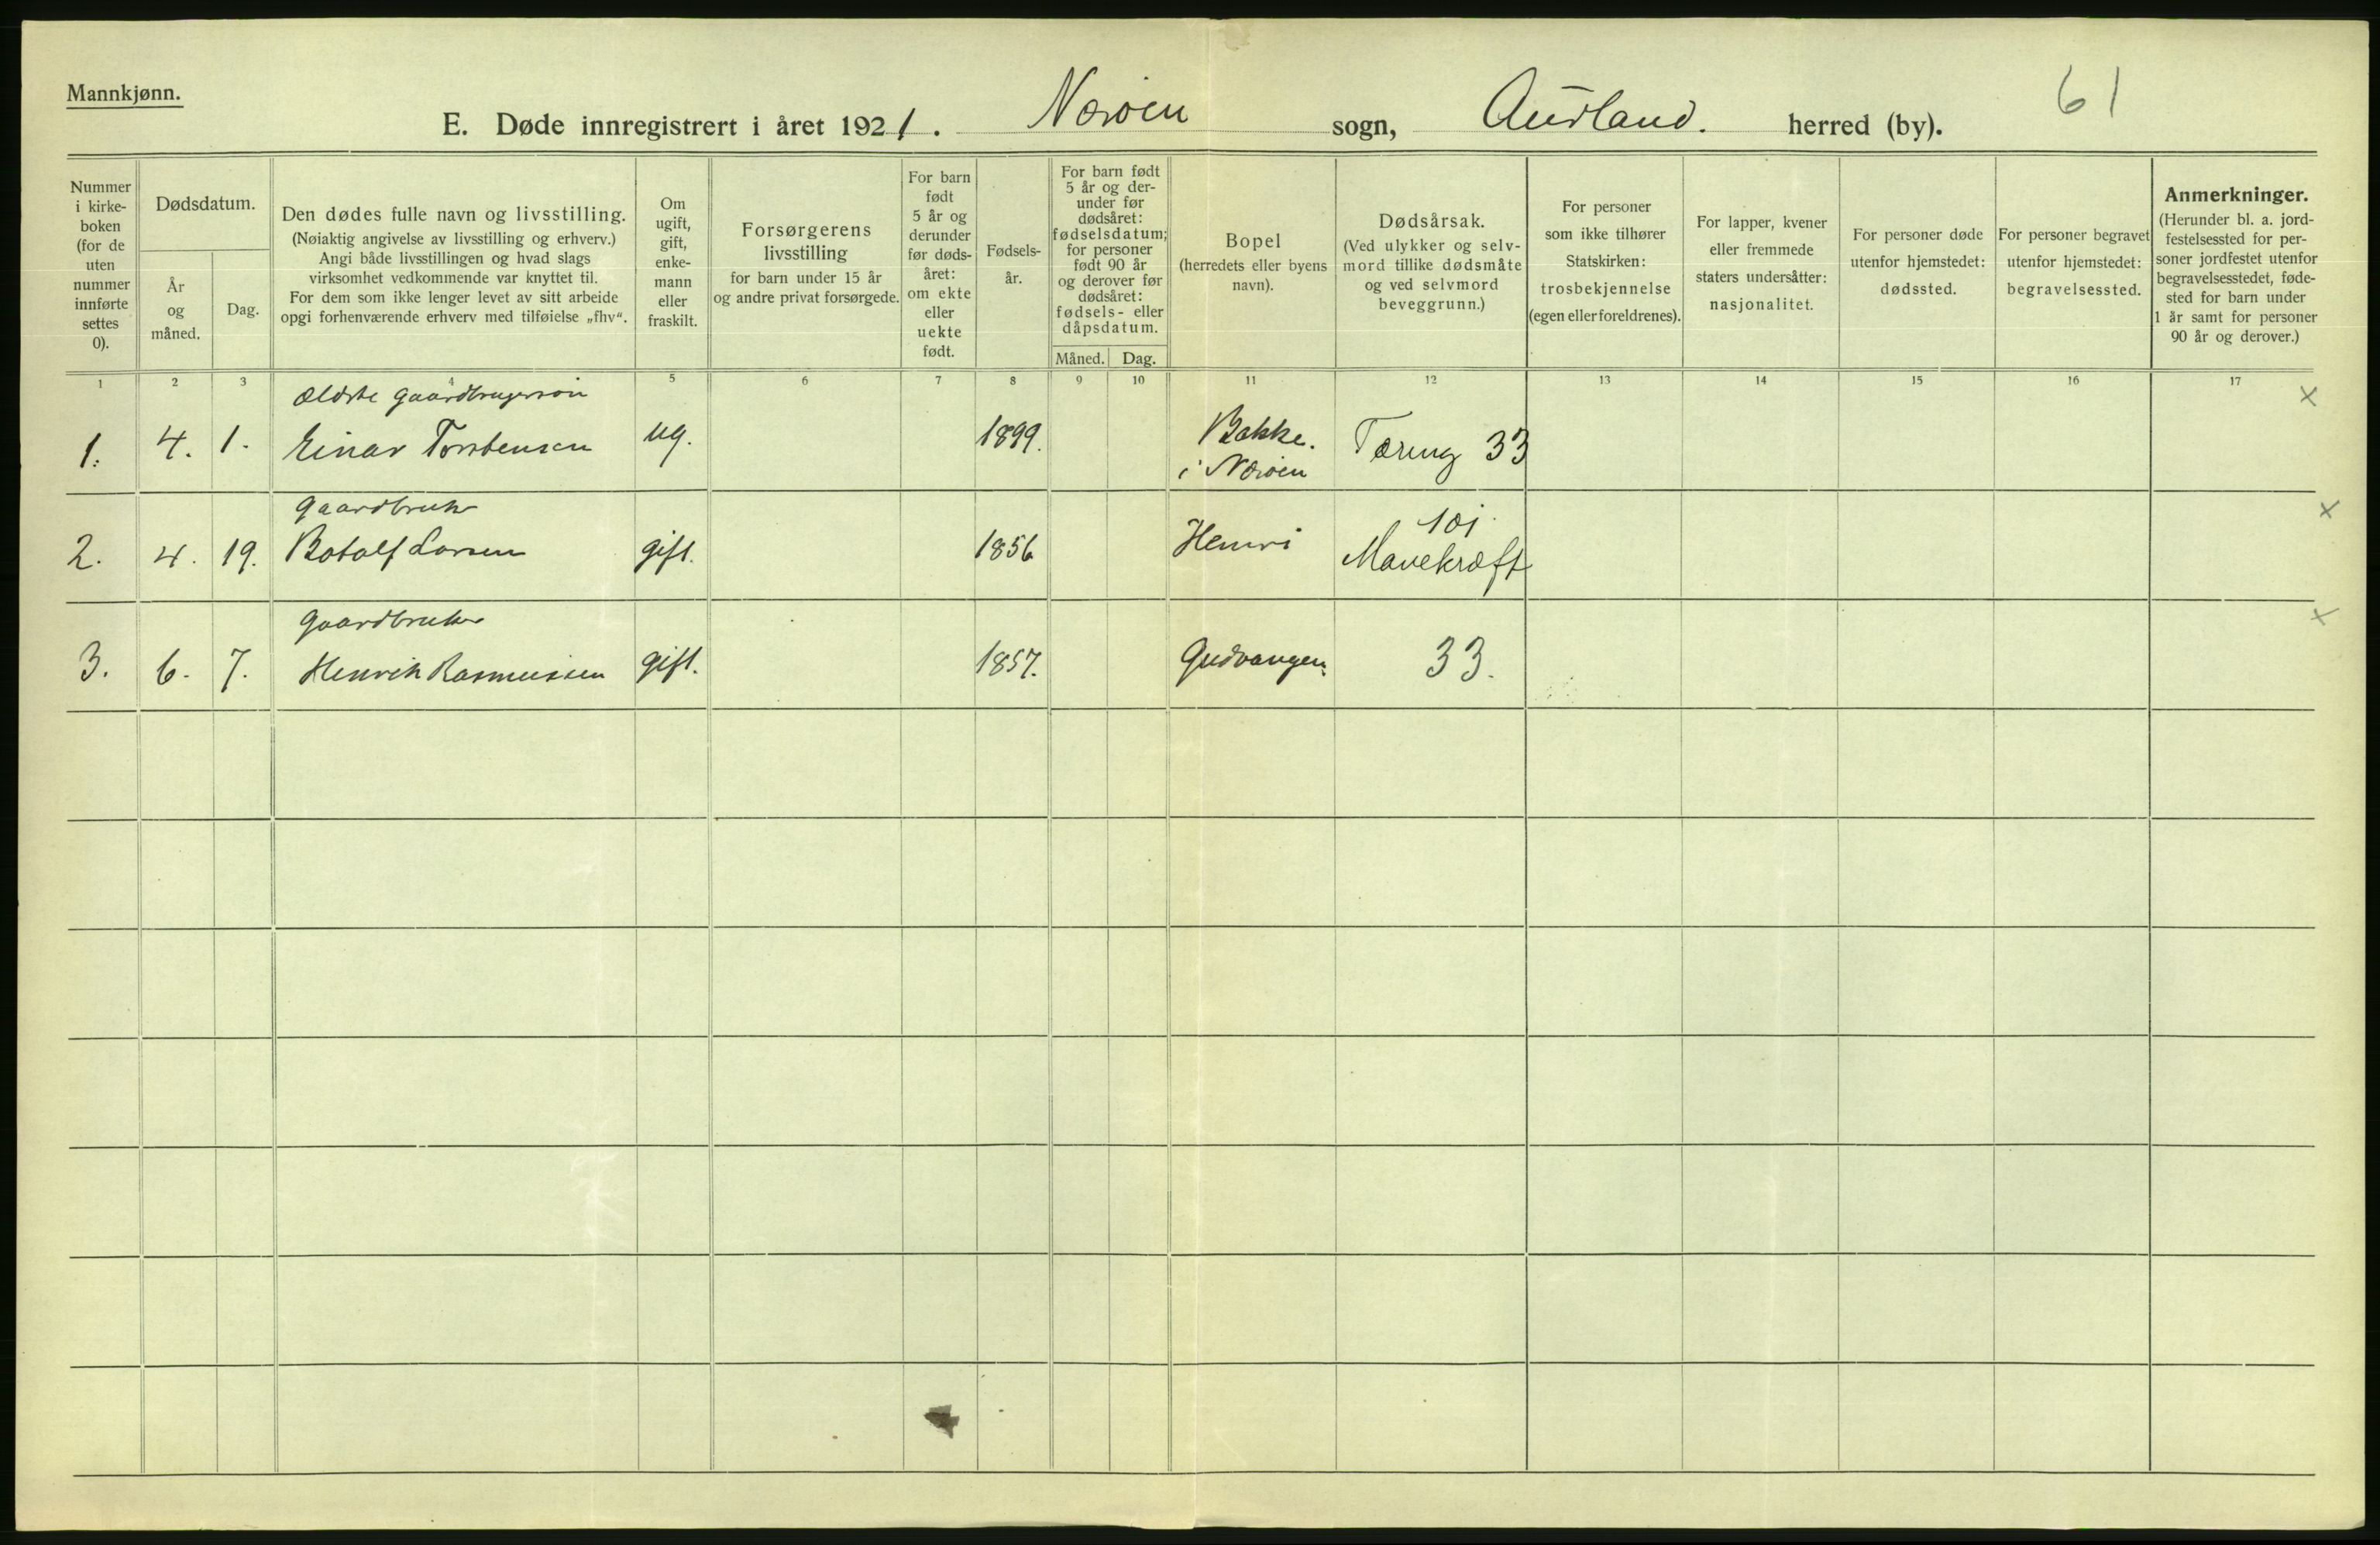 Mannkjønn.
E. Døde innregistrert i året 1921. Nærøen sogn, Aurland. herred (by).
61
Nummer
i kirke-
boken
(for de
uten
nummer
innførte
settes
0).
Dødsdatum.
År
og
måned.
Dag.
Den dødes fulle navn og livsstilling.
(Nøiaktig angivelse av livsstilling og erhverv.)
Angi både livsstillingen og hvad slags
virksomhet vedkommende var knyttet til.
For dem som ikke lenger levet av sitt arbeide
opgi forhenværende erhverv med tilføielse „fhv“.
Om
ugift,
gift,
enke-
mann
eller
fraskilt.
Forsørgerens
livsstilling
for barn under 15 år
og andre privat forsørgede.
For barn
født
5 år og
derunder
før døds-
året:
om ekte
eller
uekte
født.
Fødsels-
år.
For barn født
5 år og der-
under før
dødsåret:
fødselsdatum;
for personer
født 90 år
og derover før
dødsåret:
fødsels- eller
dåpsdatum.
Måned. Dag.
Bopel
(herredets eller byens
navn).
Dødsårsak.
(Ved ulykker og selv-
mord tillike dødsmåte
og ved selvmord
beveggrunn.)
For personer
som ikke tilhører
Statskirken:
trosbekjennelse
(egen eller foreldrenes).
For lapper, kvener
eller fremmede
staters undersåtter:
nasjonalitet.
For personer døde
utenfor hjemstedet:
dødssted.
For personer begravet
utenfor hjemstedet:
begravelsessted.
Anmerkninger.
(Herunder bl. a. jord-
festelsessted for per-
soner jordfestet utenfor
begravelsesstedet, føde-
sted for barn under
1 år samt for personer
90 år og derover.)
1 2 3 4 5 6 7 8 9 10 11 12 13 14 15 16 17
Ældste gaardbrugersøn x
1. 4. 1. Einar Torstensen ug. 1899. Bakke. Tæring 33
i Nærøen
Gaardbruker 101 x
2. 4. 19. Botolf Larsen gift. 1856 Hemri Mavekræft
Gaardbruker x
3. 6. 7. Henrik Rasmussen gift. 1857. Gudvangen. 33.